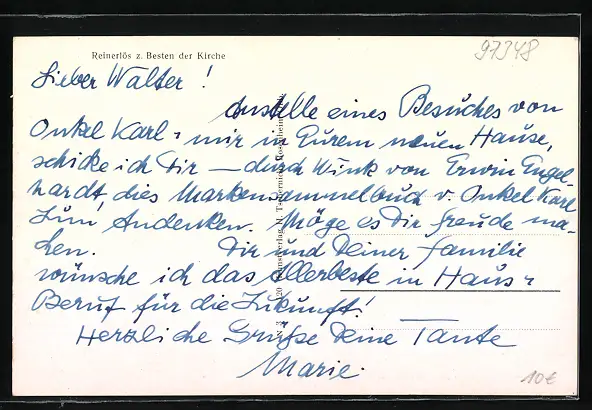 97348
Reinerlös z. Besten der Kirche
Lieber Walter!
Anstelle eines Besuches von
Onkel Karl u. mir in Eurem neuen Hause,
schicke ich Dir — durch Wink von Erwin Engel-
hardt, dies Markensammelbuch v. Onkel Karl
zum Andenken. Möge es Dir Freude ma-
chen. Dir und Deiner Familie
wünsche ich das Allerbeste in Haus u.
Beruf für die Zukunft!
Herzliche Grüße Deine Tante
Marie.
10€